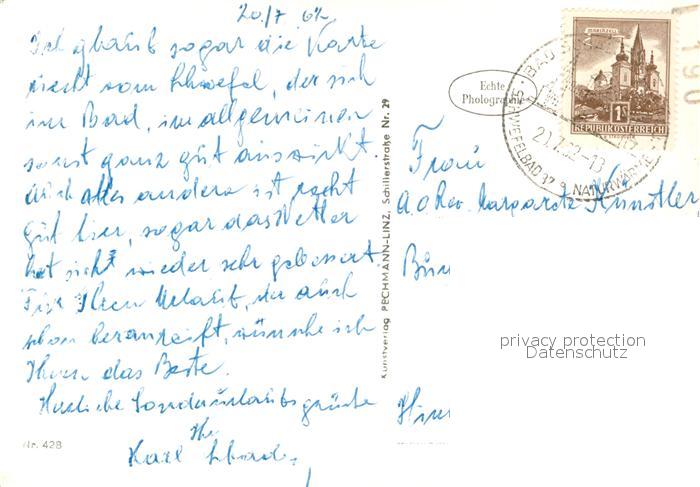 20./7 62
Ich glaub sogar die Karte
riecht vom Schwefel, der sich
im Bad, im allgemeinen
sonst ganz gut auswirkt.
Auch alles andere ist recht
gut hier, sogar das Wetter
hat sich wieder sehr gebessert.
Für Ihren Urlaub, der auch
schon heranreift, wünsche ich
Ihnen das Beste.
Herzliche Sonderurlaubsgrüße
Ihr
Karl
Nr. 428
Kunstverlag PECHMANN-LINZ, Schillerstraße Nr. 29
Echte
Photographie
BAD
SCHWEFELBAD 37° NATURWARME
21.7.62-13
MARIAZELL
1S
REPUBLIK ÖSTERREICH
Frau
Margarete Künstler,
privacy protection
Datenschutz
190